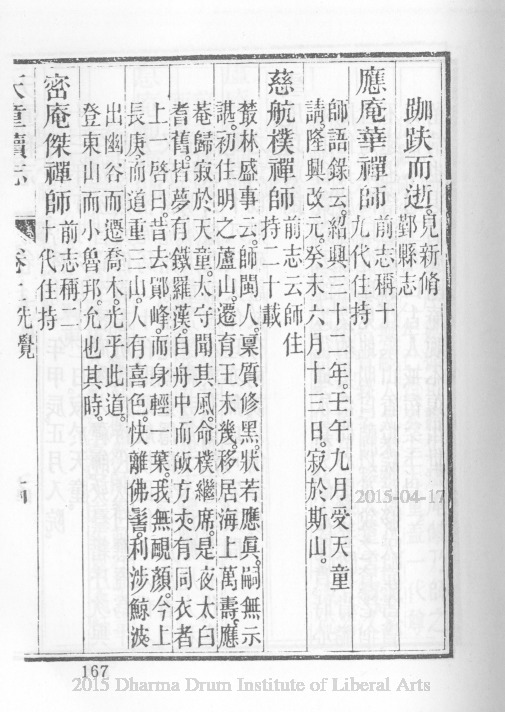 跏趺而逝。見新脩
鄞縣志
應庵華禪師前志稱十
九代住持
師語錄云。紹興三十二年。壬午九月受天童
請。隆興改元。癸未六月十三日。寂於斯山。
慈航樸禪師前志云師住
持二十載
叢林盛事云。師閩人。稟質修黑。狀若應眞。嗣無示
諶。初住明之蘆山。遷育王未幾。移居海上萬壽。應
菴歸寂於天童。太守聞其風。命樸繼席。是夜太白
耆舊。皆夢有鐵羅漢。自舟中而皈方丈。有同衣者
上一啓曰。昔去鄮峰。而身輕一葉。我無靦顏。今上
長庚。而道重三山。人有喜色。快離佛窟。利涉鯨波
出幽谷而遷喬木。光乎此道。
登東山而小魯邦。允也其時。
密庵傑禪師前志稱二
十代住持
天童寺續志 卷上 先覺
167
2015-04-17
2015 Dharma Drum Institute of Liberal Arts